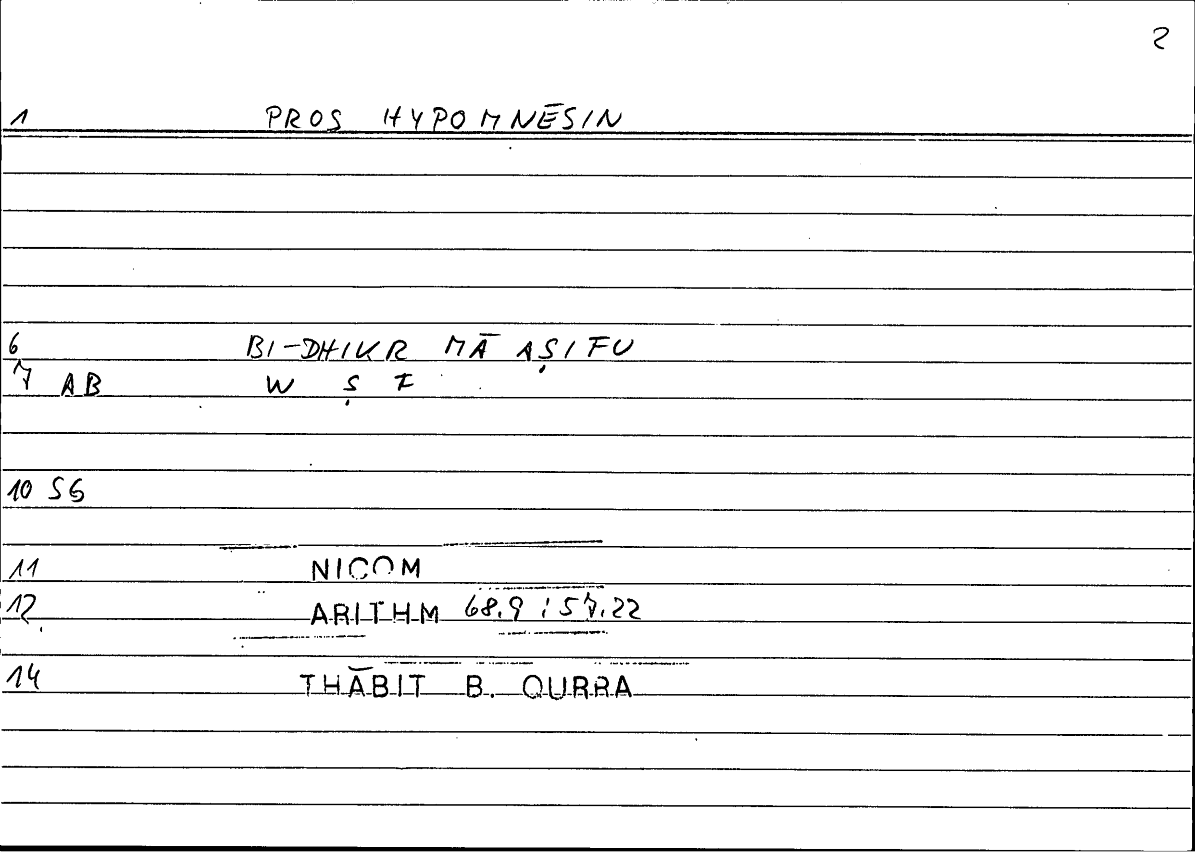 2
1 PROS HYPOMNĒSIN
6 BI-DHIKR MĀ AṢIFU
7 AB W Ṣ F
10 SG
11 NICOM
12 ARITHM 68.9 : 57.22
14 THĀBIT B. QURRA